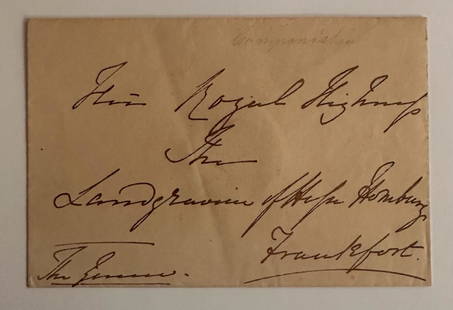 Her Royal Highness
The
Landgravine of Hesse Homburg
Frankfort.
The Queen.